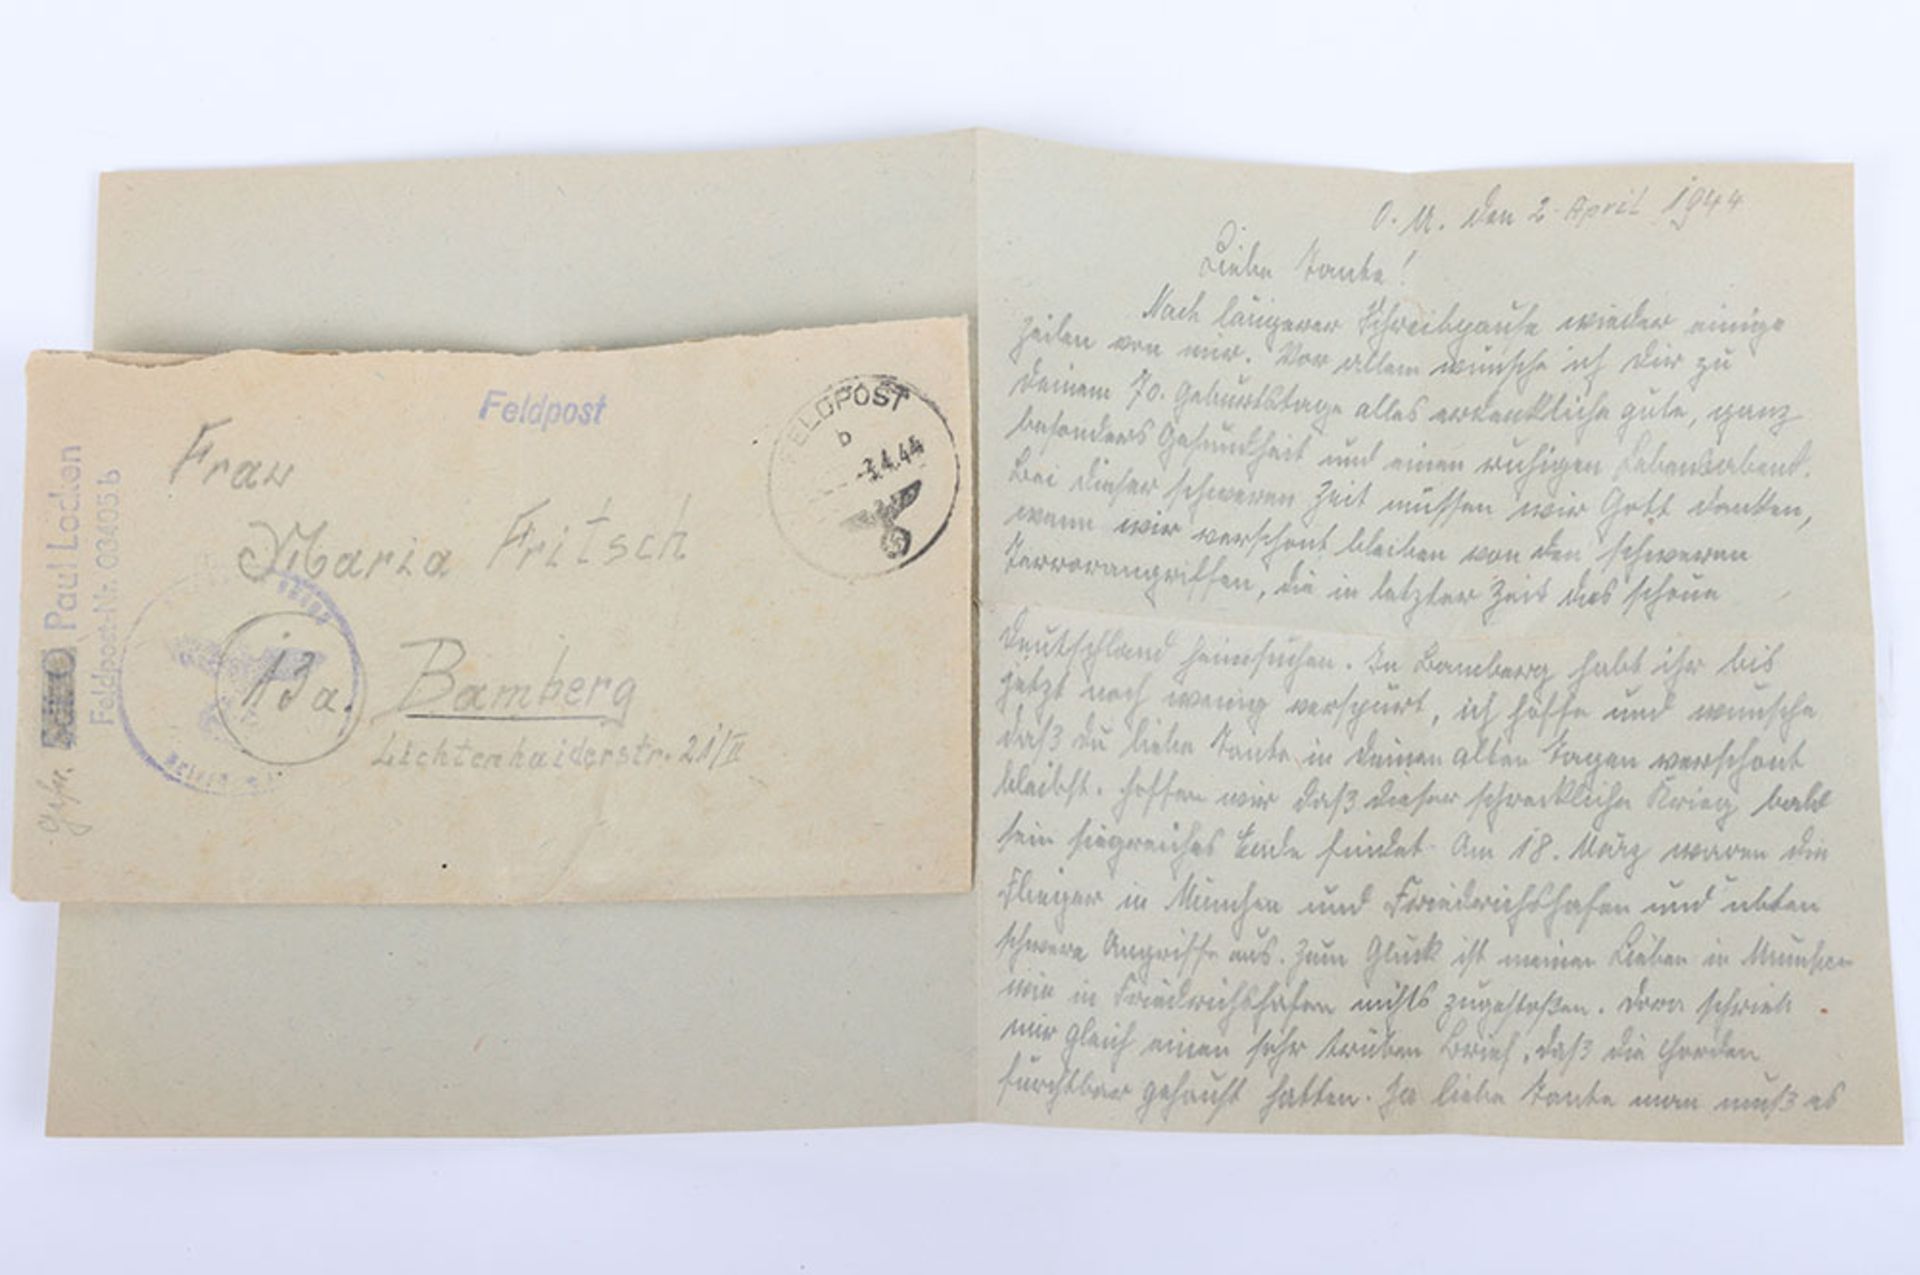 Feldpost
FELDPOST
b
-3.4.44
Frau
Maria Fritsch
13a. Bamberg
Lichtenhaiderstr. 21/II
Gefr. Paul Locken
Feldpost-Nr. 03405 b
O. U. den 2. April 1944
Liebe Tante!
Nach längerer Schreibpause wieder einige
Zeilen von mir. Vor allem wünsche ich Dir zu
Deinem 70. Geburtstage alles erdenkliche gute, ganz
besonders Gesundheit und einen ruhigen Lebensabend.
Bei dieser schweren Zeit müssen wir Gott danken,
wenn wir verschont bleiben von den schweren
Terrorangriffen, die in letzter Zeit das schöne
Deutschland heimsuchen. In Bamberg habt ihr bis
jetzt noch wenig verspürt, ich hoffe und wünsche
daß du liebe Tante in Deinen alten Tagen verschont
bleibst. Hoffen wir daß dieser schreckliche Krieg bald
sein siegreiches Ende findet. Am 18. März waren die
Flieger in München und Friedrichshafen und übten
schwere Angriffe aus. Zum Glück ist meinen Lieben in München
wie in Friedrichshafen nichts zugestoßen. Dora schrieb
mir gleich einen sehr trüben Brief, daß die Horden
furchtbar gehaust hatten. Ja liebe Tante man muß es